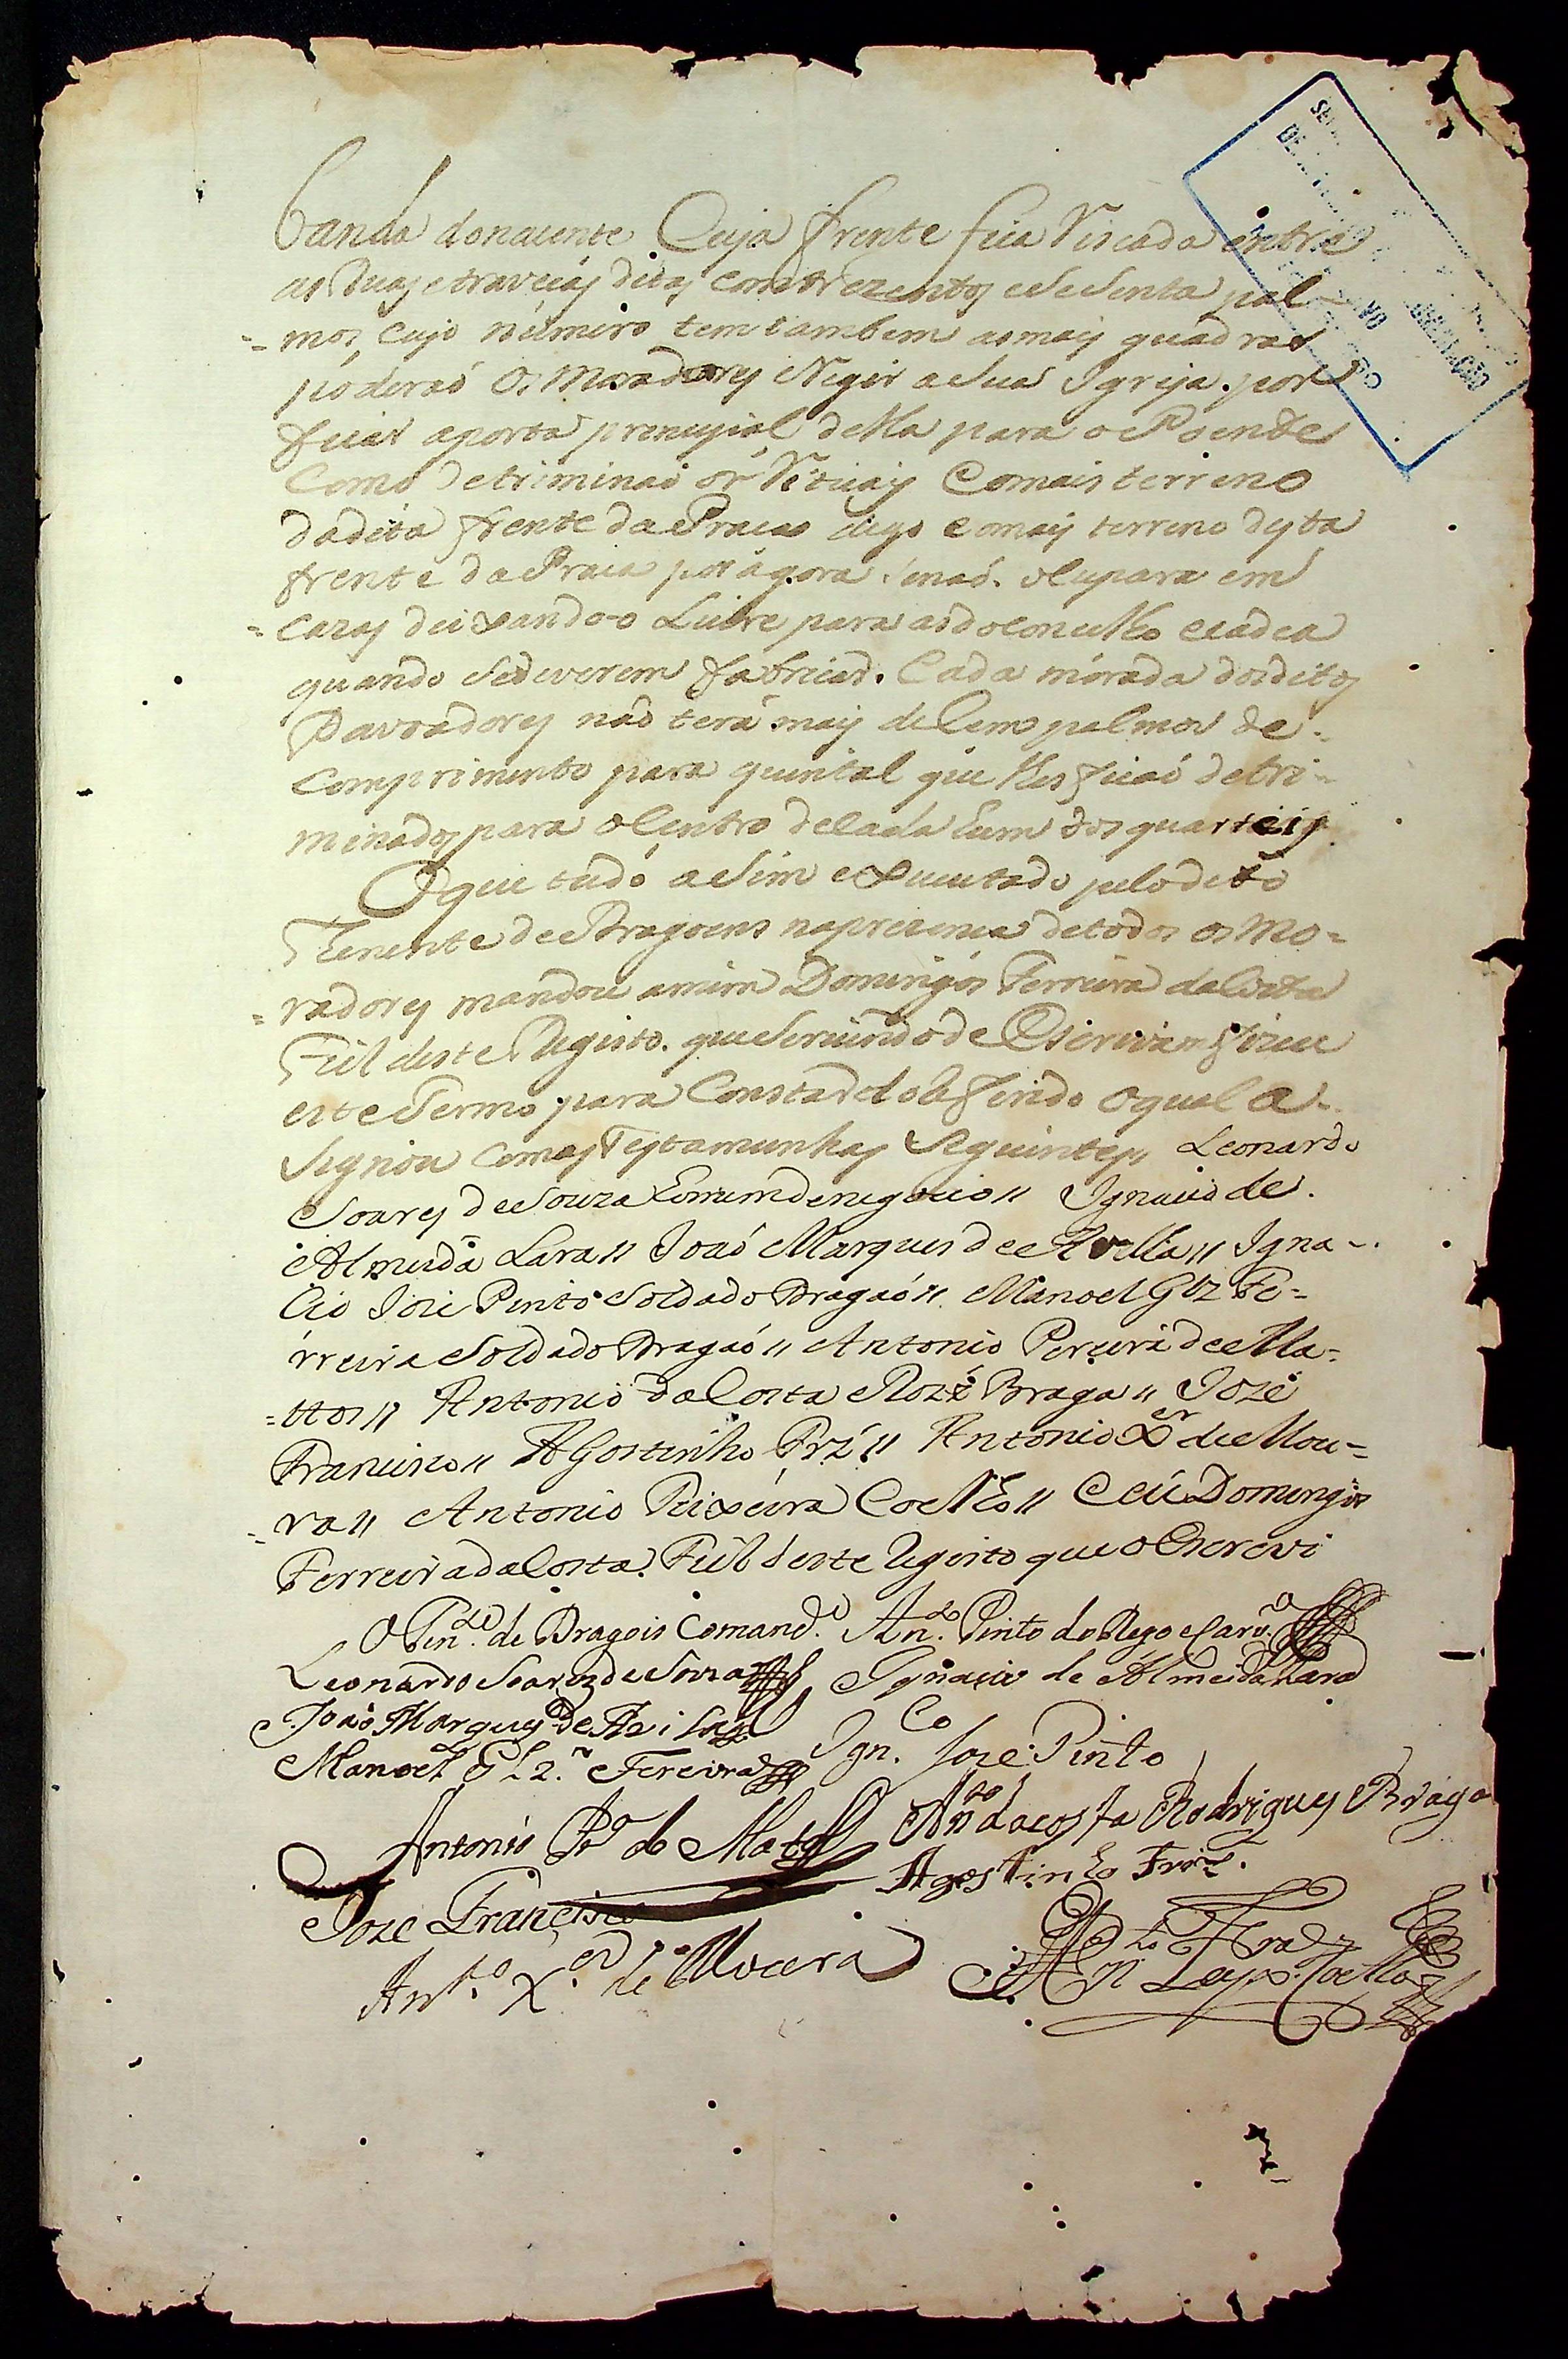 banda donacente Cuja frente fica Riscada entre
as duas travecas ditas comtrezentos eSeSenta pal
= mos, cujo número tem tambem asmais quadras
poderaó Os Moradores Regir aSua Igreja. por
ficar aporta prencipial della para oPoente
Como detriminaó os Rituais Comais terreno
dadita frente da Praca digo eomais terreno desta
frente daPraia por ágora senaó. ocupara em
= Cazas deixando-o Livre para asdoconcelho ecadea
quando Sedeverem fabricar. Cada mórada dosditos
Povoadores naó terá mais deCem palmos de.
Comprimento para quintal que lhes ficaó detri-
minados para oCentro deCada hum dos quarteis
Oque tudo aSim exSucutado pelodito
Tenente de Dragoens naprezenca detodos os Mo=
= radores mandou amim Domingos Ferreira daCosta
Fiel deste Registo. queServindo de Escrivam fizece
este Termo para Constar doReferido Oqual a-
Signou Comas Testamunhas Seguintes,, Leonardo
Soares deSouza homemdenegocio,, Ignacio de.
Almeida Lara,, Joaó Marques de Avilla,, Igna-
Cio Joze Pinto Soldado Dragaó,, Manoel Glz Fe=
rreira Soldado Dragaó,, Antonio Pereira deMa=
=ttos,, Antonio daCosta Roiz Braga,, Joze
Francisco,, AGostinho Frz,, Antonio Xer deMou=
= ra,, Antonio Teixeira Coelho,, Eeu Domingos
Ferreira daCosta. Fiel deste Registo queoEscrevi
O Tente. de Dragois Comande. Anto. Pinto do Rego eCarvo.
Leonardo Soares deSouza Ignacio de Almeida Lara
João Marques de Avila
Manoel Glz. Fereira Ignco. Joze Pinto
Antonio Pra de Matos Anto dacosta Rodrigues Braga
Joze Francisco Agostinho Frz.
Anto. Xer de Moura Anto. Teyxra. Coelho